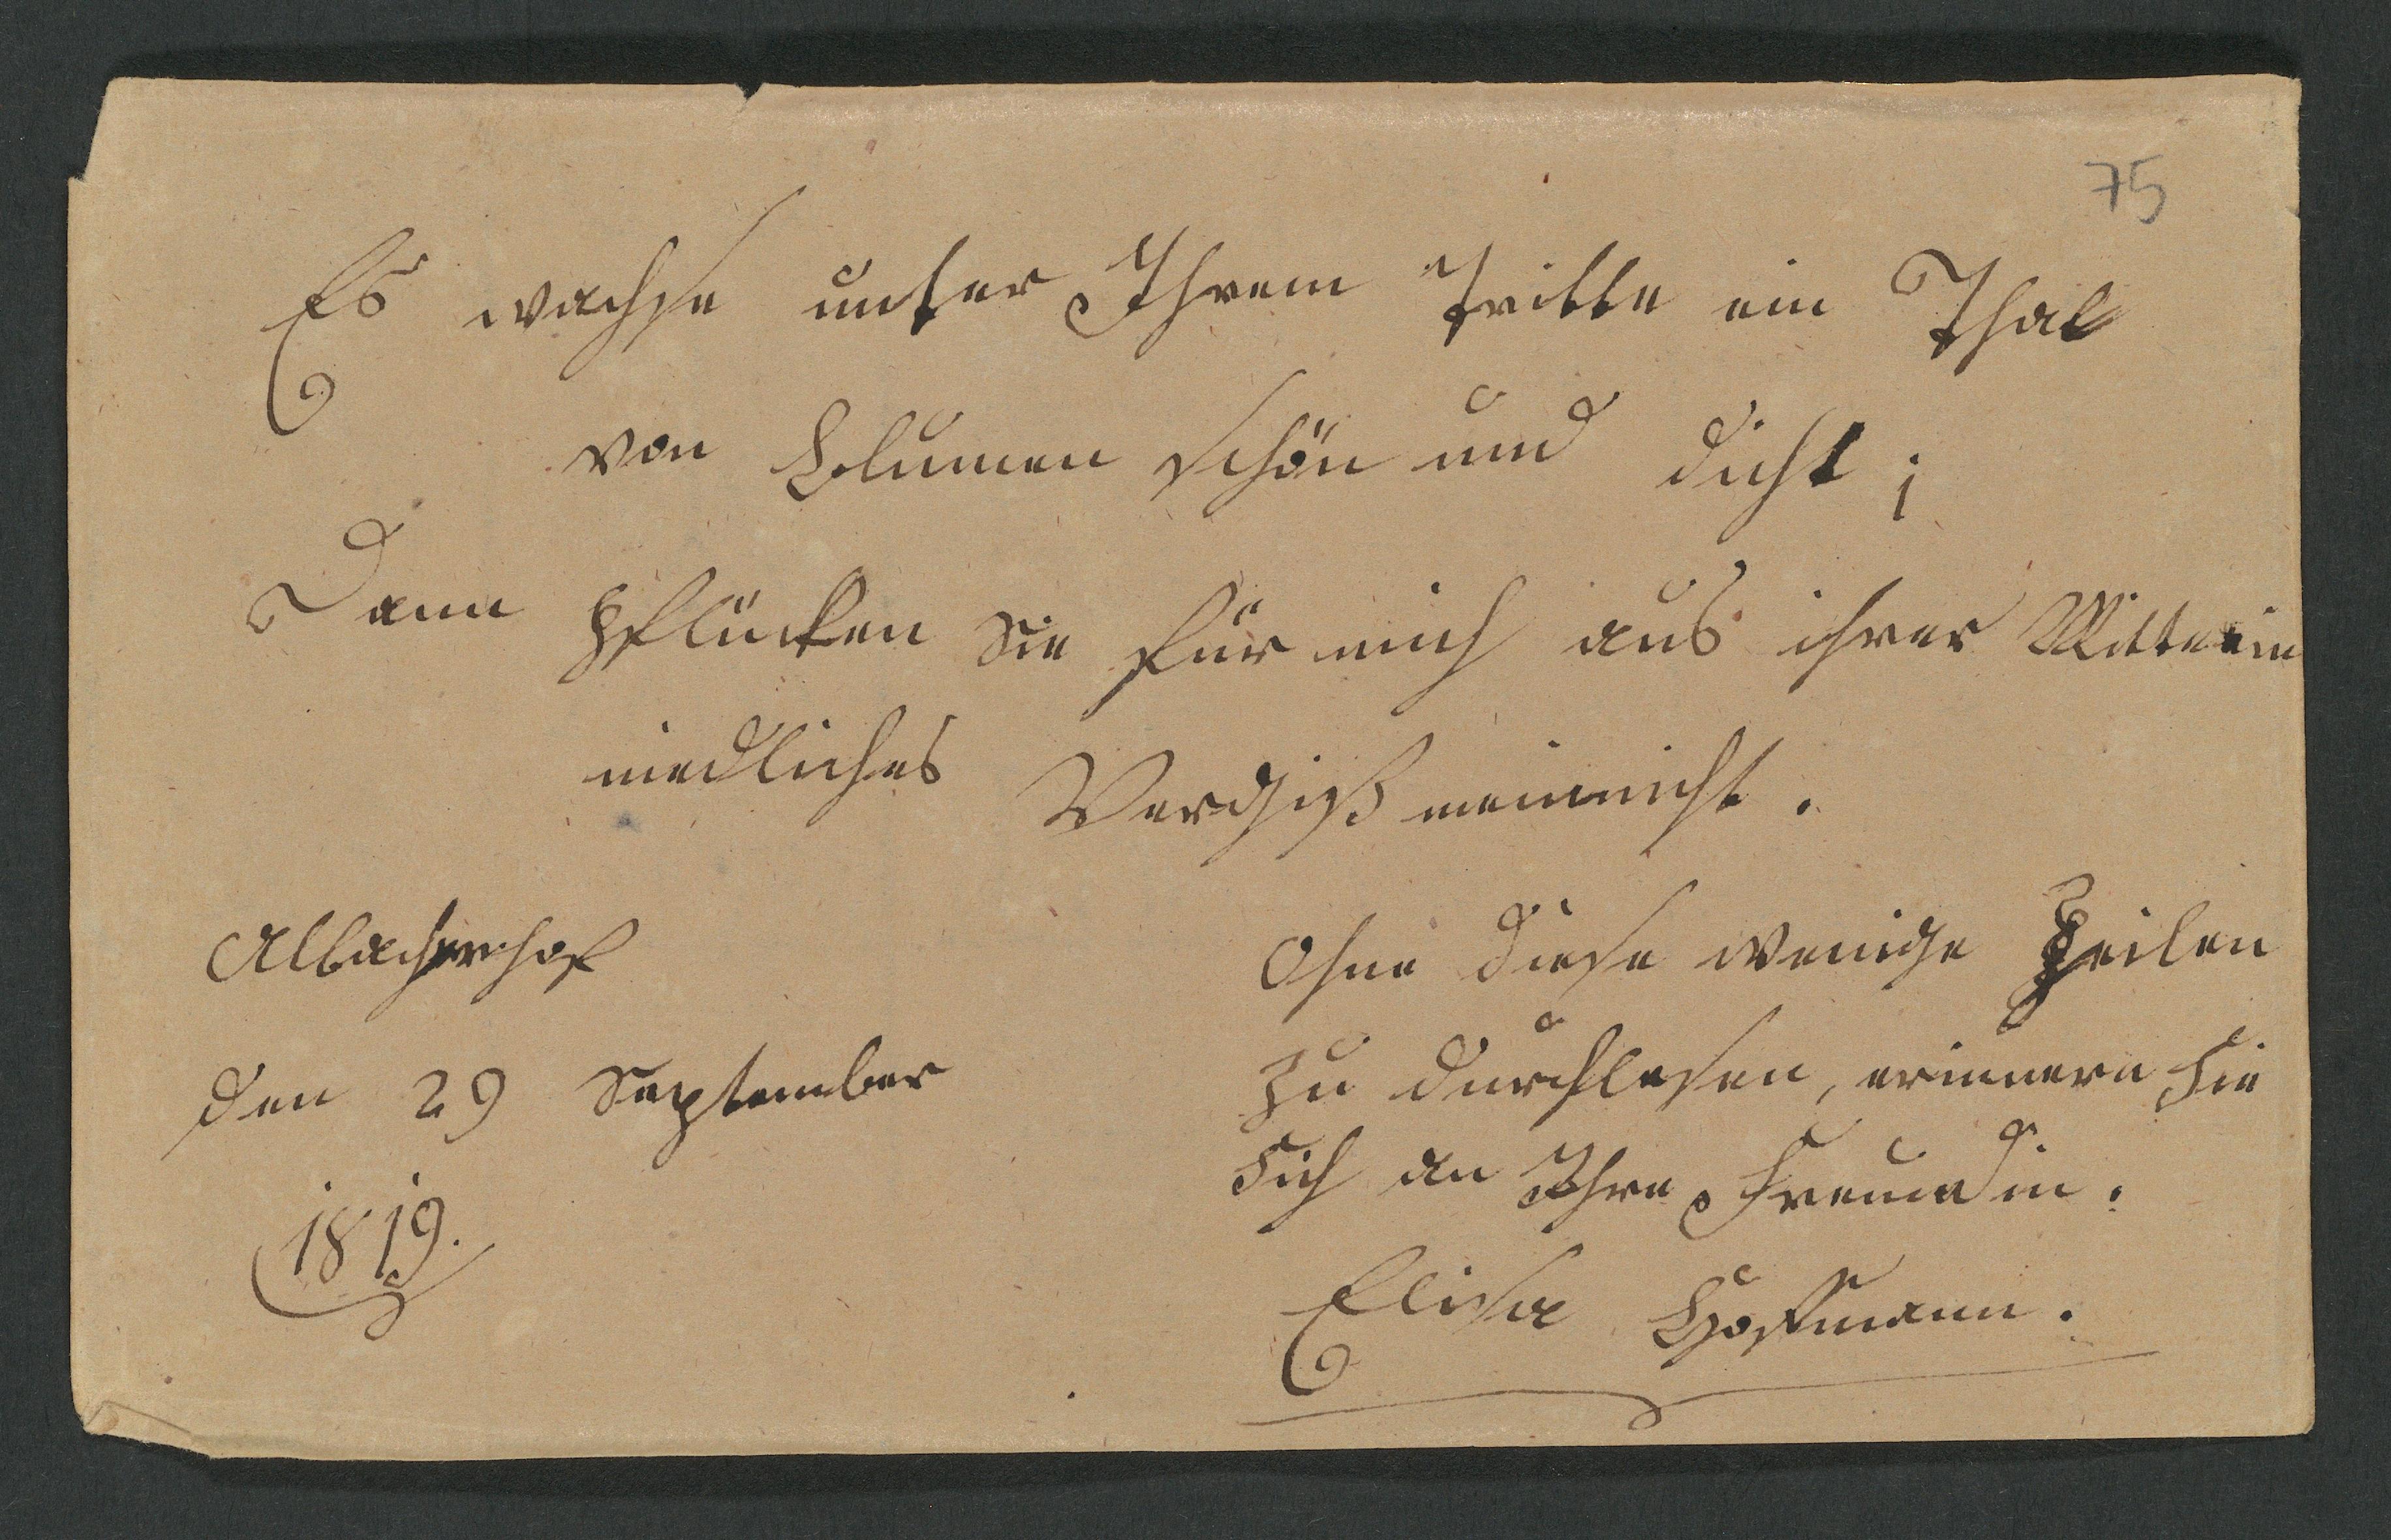 75
Es wachse unter Ihrem Tritte ein Thal
von Blumen schön und dicht;
Dann pflücken Sie für mich aus ihrer Mitte ein
niedliches Vergiß meinnicht.
Albacherhof
den 29 September
1819.
Ohne diese wenige Zeilen
zu durchlesen, erinnern Sie
sich an Ihre Freundin.
Elisa Hoffmann.